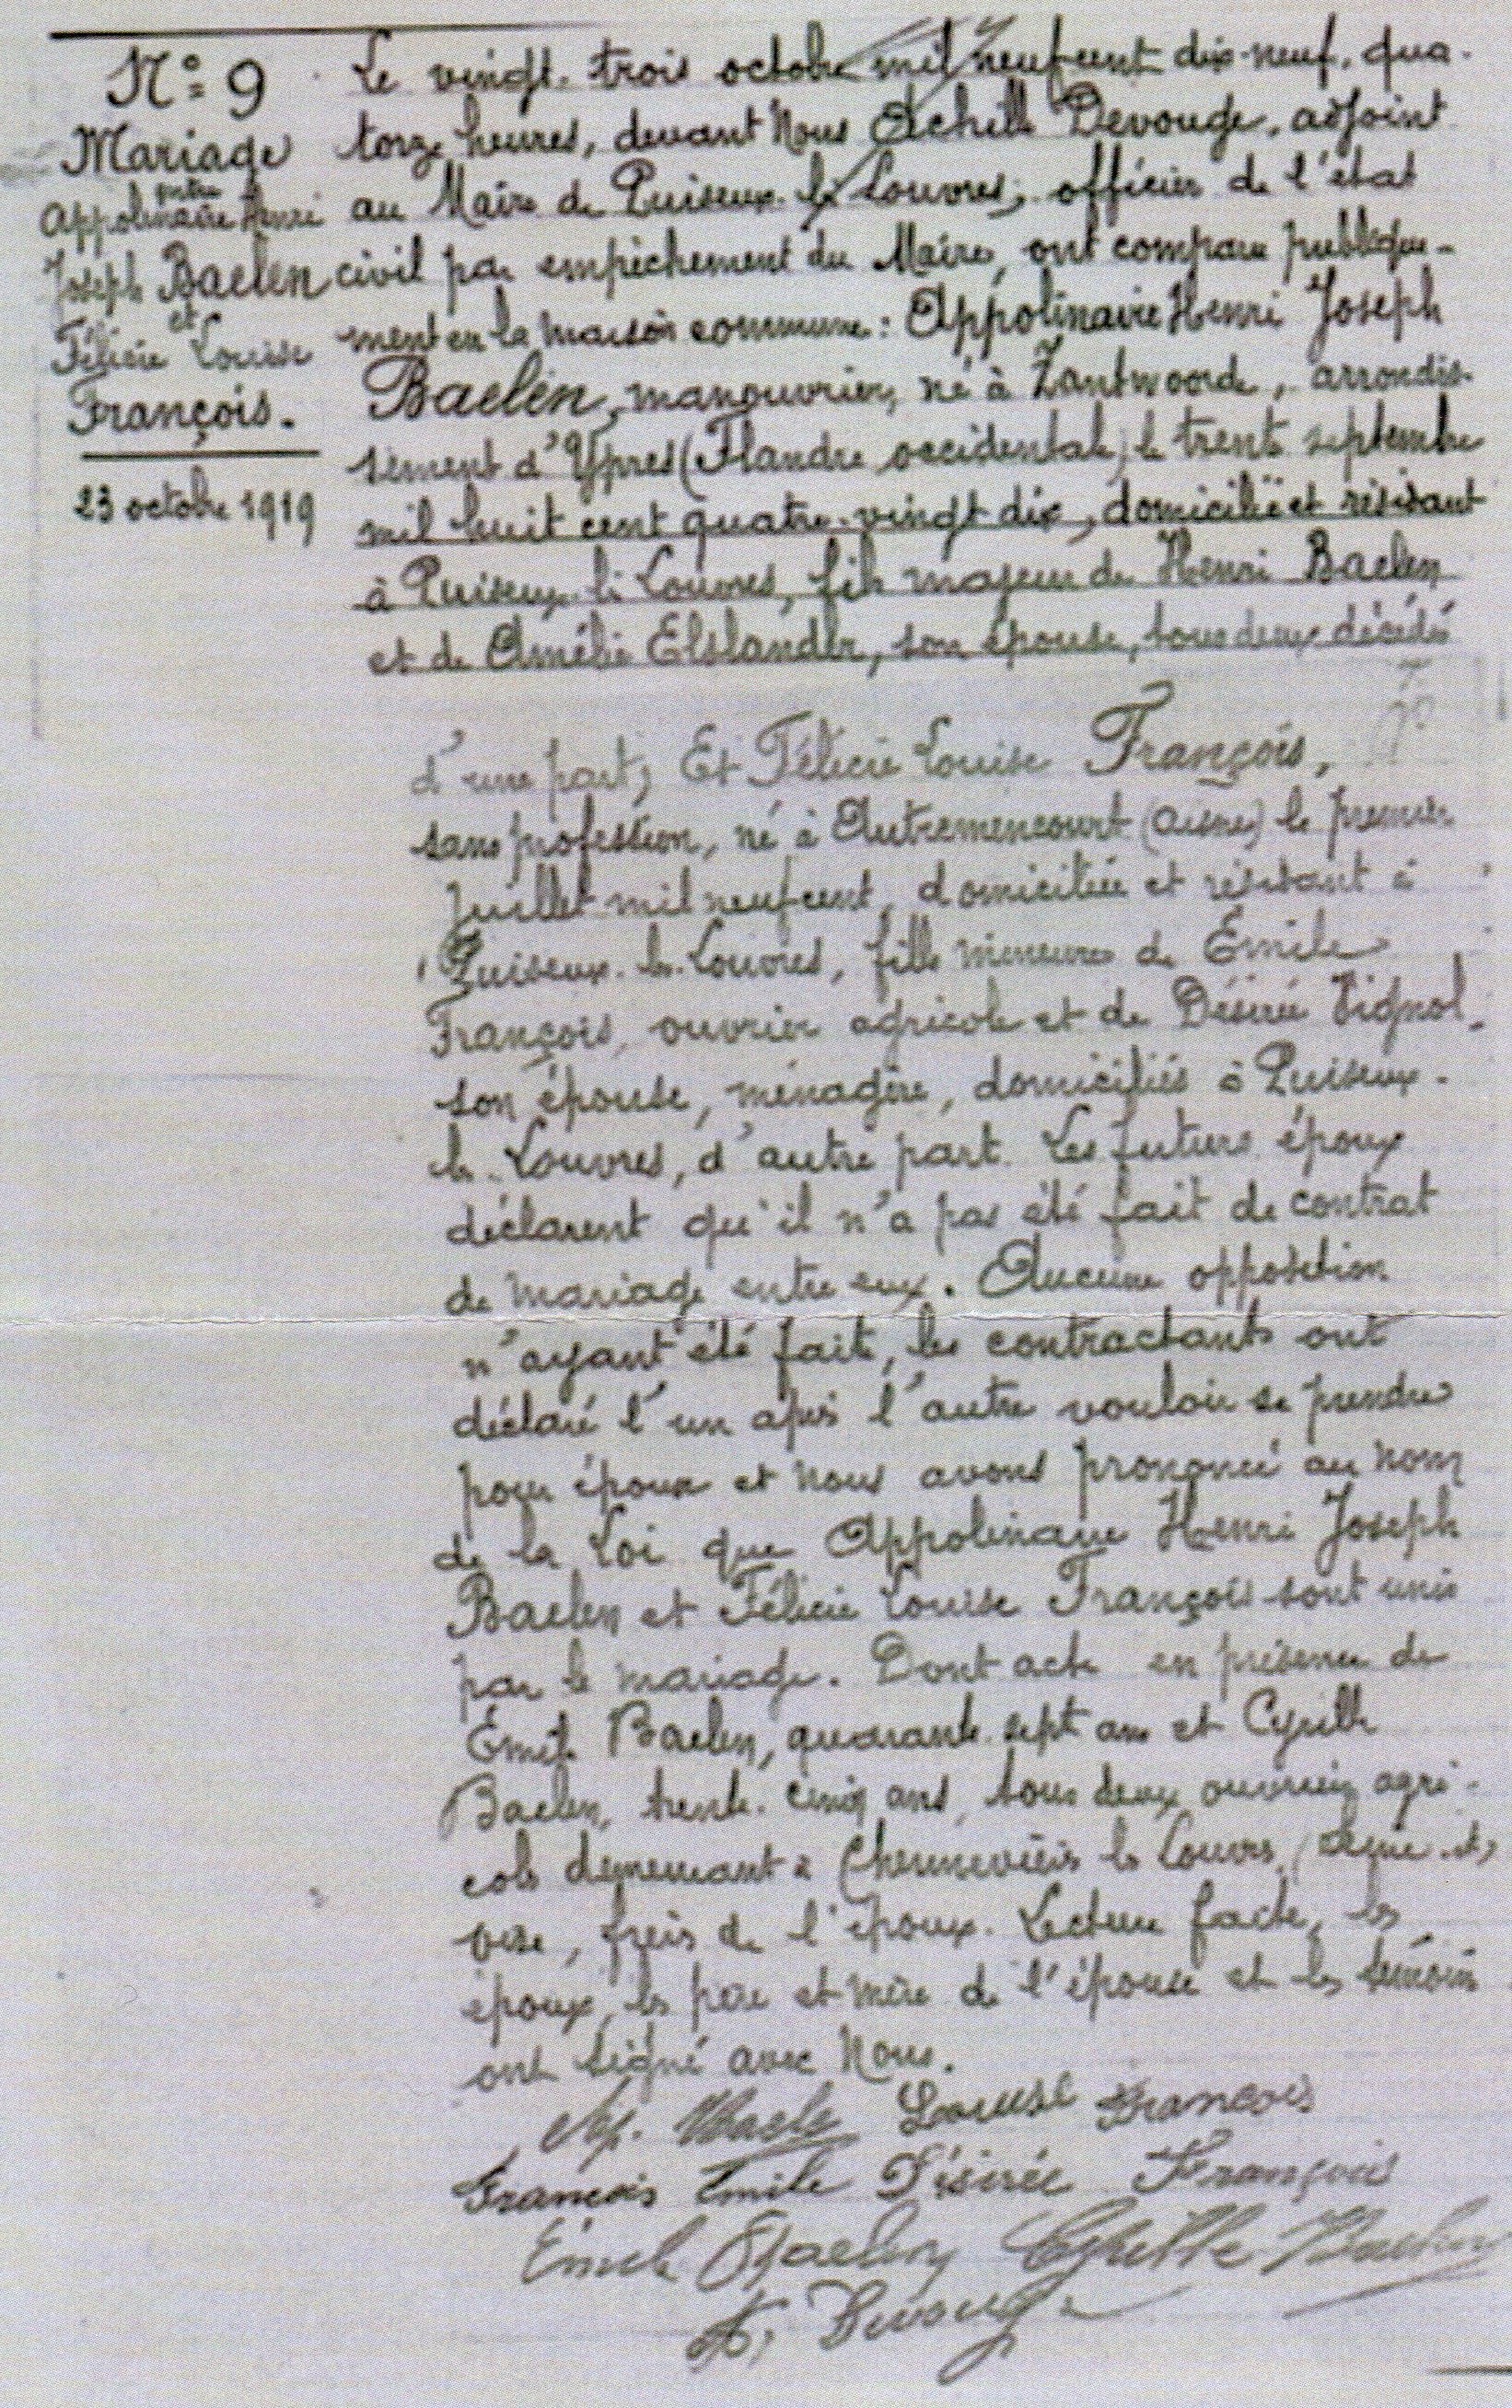 N° 9
Mariage
entre
Appolinaire Henri
Joseph Baelen
et
Félicie Louise
François.
23 octobre 1919
Le vingt-trois octobre mil neuf cent dix-neuf, qua-
torze heures, devant Nous Achille Devouge, adjoint
au Maire de Puiseux-les-Louvres, officier de l'état
civil par empêchement du Maire, ont comparu publique-
ment en la maison commune: Appolinaire Henri Joseph
Baelen, manouvrier, né à Zantwoorde, arrondis-
sement d'Ypres (Flandre occidentale) le trente septembre
mil huit cent quatre-vingt dix, domicilié et résidant
à Puiseux-les-Louvres, fils majeur de Henri Baelen
et de Amélie Elslander, son épouse, tous deux décédés
d'une part; Et Félicie Louise François,
sans profession, né à Autremencourt (Aisne) le premier
Juillet mil neuf cent, domiciliée et résidant à
Puiseux-les-Louvres, fille mineure de Émile
François, ouvrier agricole et de Désirée Vignol-
son épouse, ménagère, domiciliés à Puiseux-
les-Louvres, d'autre part. Les futurs époux
déclarent qu'il n'a pas été fait de contrat
de mariage entre eux. Aucune opposition
n'ayant été faite, les contractants ont
déclaré l'un après l'autre vouloir se prendre
pour époux et nous avons prononcé au nom
de la Loi que Appolinaire Henri Joseph
Baelen et Félicie Louise François sont unis
par le mariage. Dont acte en présence de
Émile Baelen, quarante-sept ans et Cyrille
Baelen, trente-cinq ans, tous deux ouvriers agri-
coles demeurant à Chennevières les Louvres (Seine-et-
Oise, frères de l'époux. Lecture faite, les
époux, les père et mère de l'épouse et les témoins
ont signé avec Nous.
Ap. Baelen Louise François
François Emile Désirée François
Émile Baelen Cyrille Baelen
A. Devouge